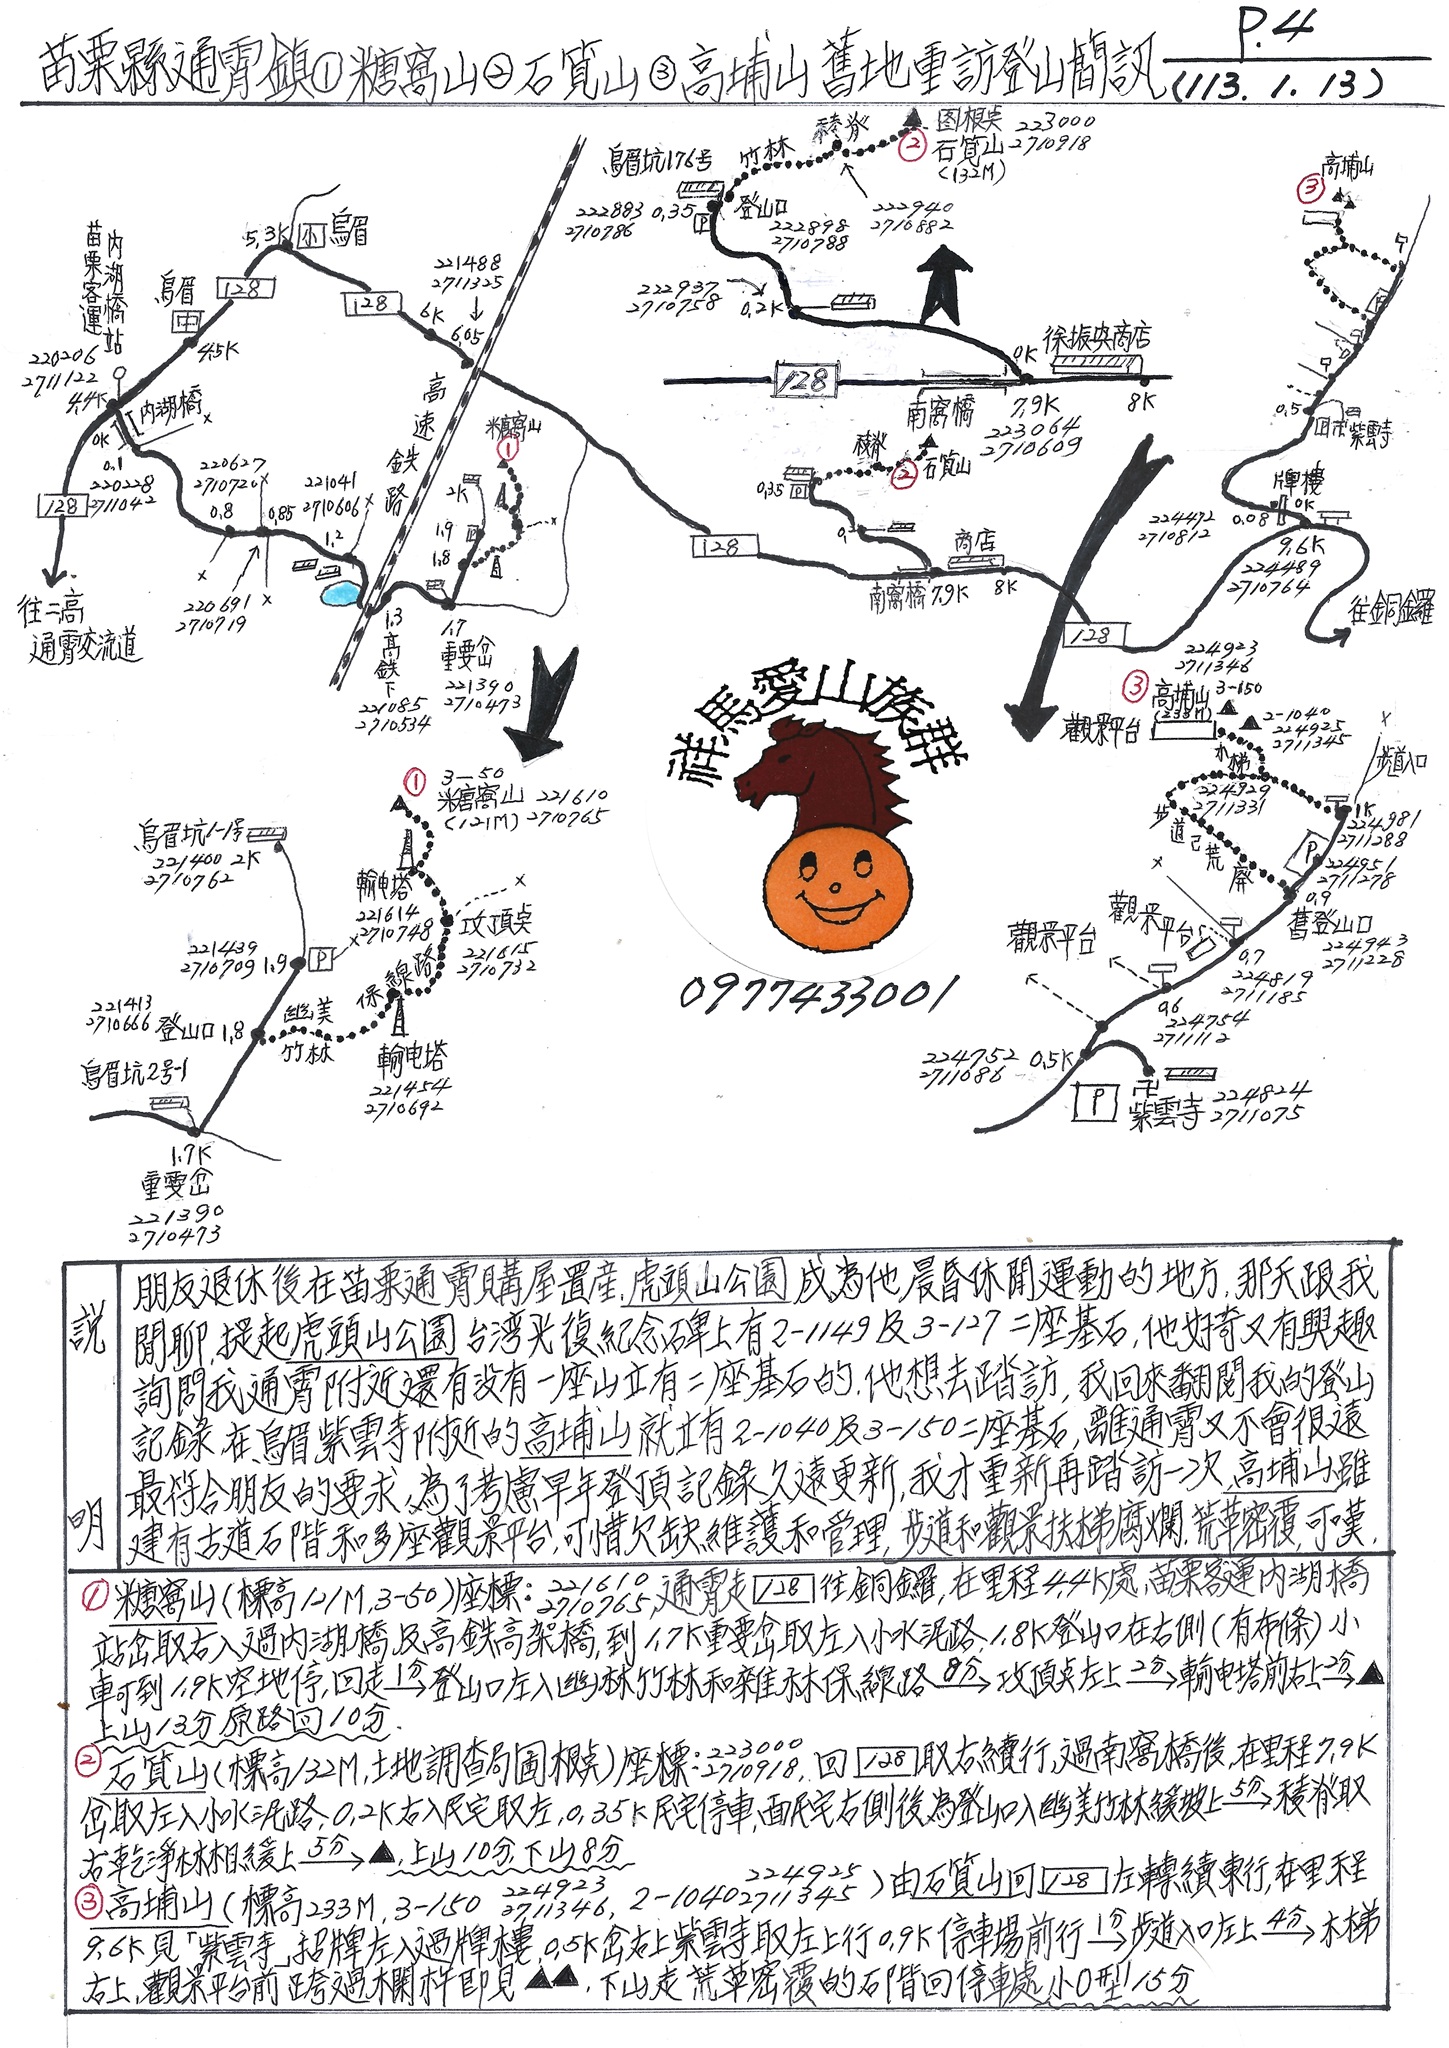 P.4
苗栗縣通霄鎮①糖窩山②石筧山③高埔山舊地重訪登山簡訊(113.1.13)
烏眉坑176号
竹林
稜脊
②
图根点
石筧山
(132M)
223000
2710918
222883
2710786
0.35
P
登山口
222898
2710788
222940
2710882
222937
2710758
0.2K
0K
徐振央商店
128
南窩橋
7.9K
223064
2710609
8K
高埔山
③
P
0.5
紫雲寺
牌樓
0K
0.08
9.6K
224489
2710764
224472
2710812
往銅鑼
苗栗客運
內湖橋站
220206
2711122
4.4K
0K
內湖橋
烏眉
中
4.5K
128
5.3K
小
烏眉
128
6K
6.05
221488
2711325
高速鉄路
0.1
220228
2711042
128
往二高
通霄交流道
0.8
220627
2710720
0.85
220691
2710719
221041
2710606
1.2
1.3
高鉄下
221085
2710534
1.7
重要岔
221390
2710473
1.8
1.9
2K
糖窩山
①
128
0.35
P
稜脊
②
石筧山
0.2
南窩橋
商店
7.9K
8K
128
祥馬愛山族群
0977433001
①
3-50
糖窩山
(121M)
221610
2710765
烏眉坑1-1号
221400
2710762
2K
輸电塔
221614
2710748
攻頂点
221615
2710732
221439
2710709
1.9
P
保線路
221413
2710666
登山口
1.8
幽美
竹林
輸电塔
221454
2710692
烏眉坑2号-1
1.7K
重要岔
221390
2710473
224923
2711346
③
高埔山
(233M)
3-150
2-1040
224925
2711345
觀景平台
木梯
224929
2711331
步道入口
1K
224981
2711288
步道已荒廢
P
224951
2711278
0.9
舊登山口
224943
2711228
觀景平台
0.7
224819
2711185
觀景平台
0.6
224754
2711112
224752
2711086
0.5K
P
卍
紫雲寺
224824
2711075
說明
朋友退休後在苗栗通霄購屋置産,虎頭山公園成為他晨昏休閒運動的地方,那天跟我
閒聊,提起虎頭山公園台湾光復紀念碑上有2-1149及3-127二座基石,他好奇又有興趣
詢問我,通霄附近還有沒有一座山立有二座基石的,他想去踏訪,我回來翻閱我的登山
記錄,在烏眉紫雲寺附近的高埔山就立有2-1040及3-150二座基石,離通霄又不會很遠
最符合朋友的要求,為了考慮早年登頂記錄久遠更新,我才重新再踏訪一次,高埔山雖
建有古道石階和多座觀景平台,可惜欠缺維護和管理,步道和觀景扶梯腐爛,荒草密覆,可嘆.
①糖窩山(標高121M,3-50)座標:221610 2710765,通霄走128往銅鑼,在里程4.4K處,苗栗客運內湖橋
站岔取右入過內湖橋及高鉄高架橋,到1.7K重要岔取左入小水泥路,1.8K登山口在右側(有布條)小
車可到1.9K空地停,回走1分→登山口左入幽林竹林和雜林保線路8分→攻頂点左上2分→輸电塔前右上2分→▲
上山13分原路回10分.
②石筧山(標高132M,土地調查局圖根点)座標:223000 2710918,回128取右續行,過南窩橋後,在里程7.9K
岔取左入小水泥路,0.2K右入民宅取左,0.35K民宅停車,面民宅右側後為登山口入幽美竹林緩坡上5分→稜脊取
右乾淨林相緩上5分→▲,上山10分,下山8分
③高埔山(標高233M,3-150 224923 2711346,2-1040 224925 2711345)由石筧山回128左轉續東行,在里程
9.6K見「紫雲寺」招牌左入過牌樓,0.5K岔右上紫雲寺取左上行0.9K停車場前行1分→步道入口左上4分→木梯
右上,觀景平台前跨過欄杆即見▲▲,下山走荒草密覆的石階回停車處,小O型15分